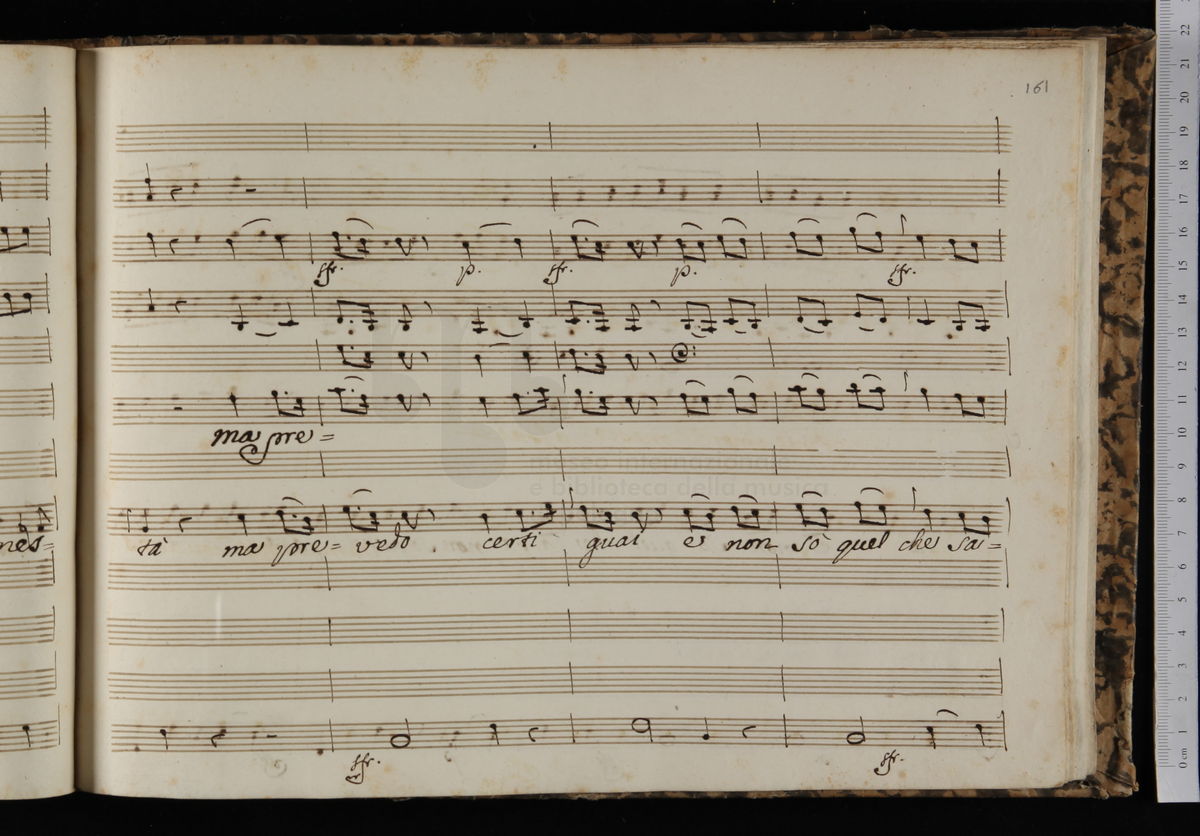 161
sfr. p. sfr. p. sfr.
ma pre=
museo internazionale
e biblioteca della musica
nes= tà ma pre= vedo certi guai e non sò quel che sa=
sfr. sfr.
22
21
20
19
18
17
16
15
14
13
12
11
10
9
8
7
6
5
4
3
2
1
0 cm